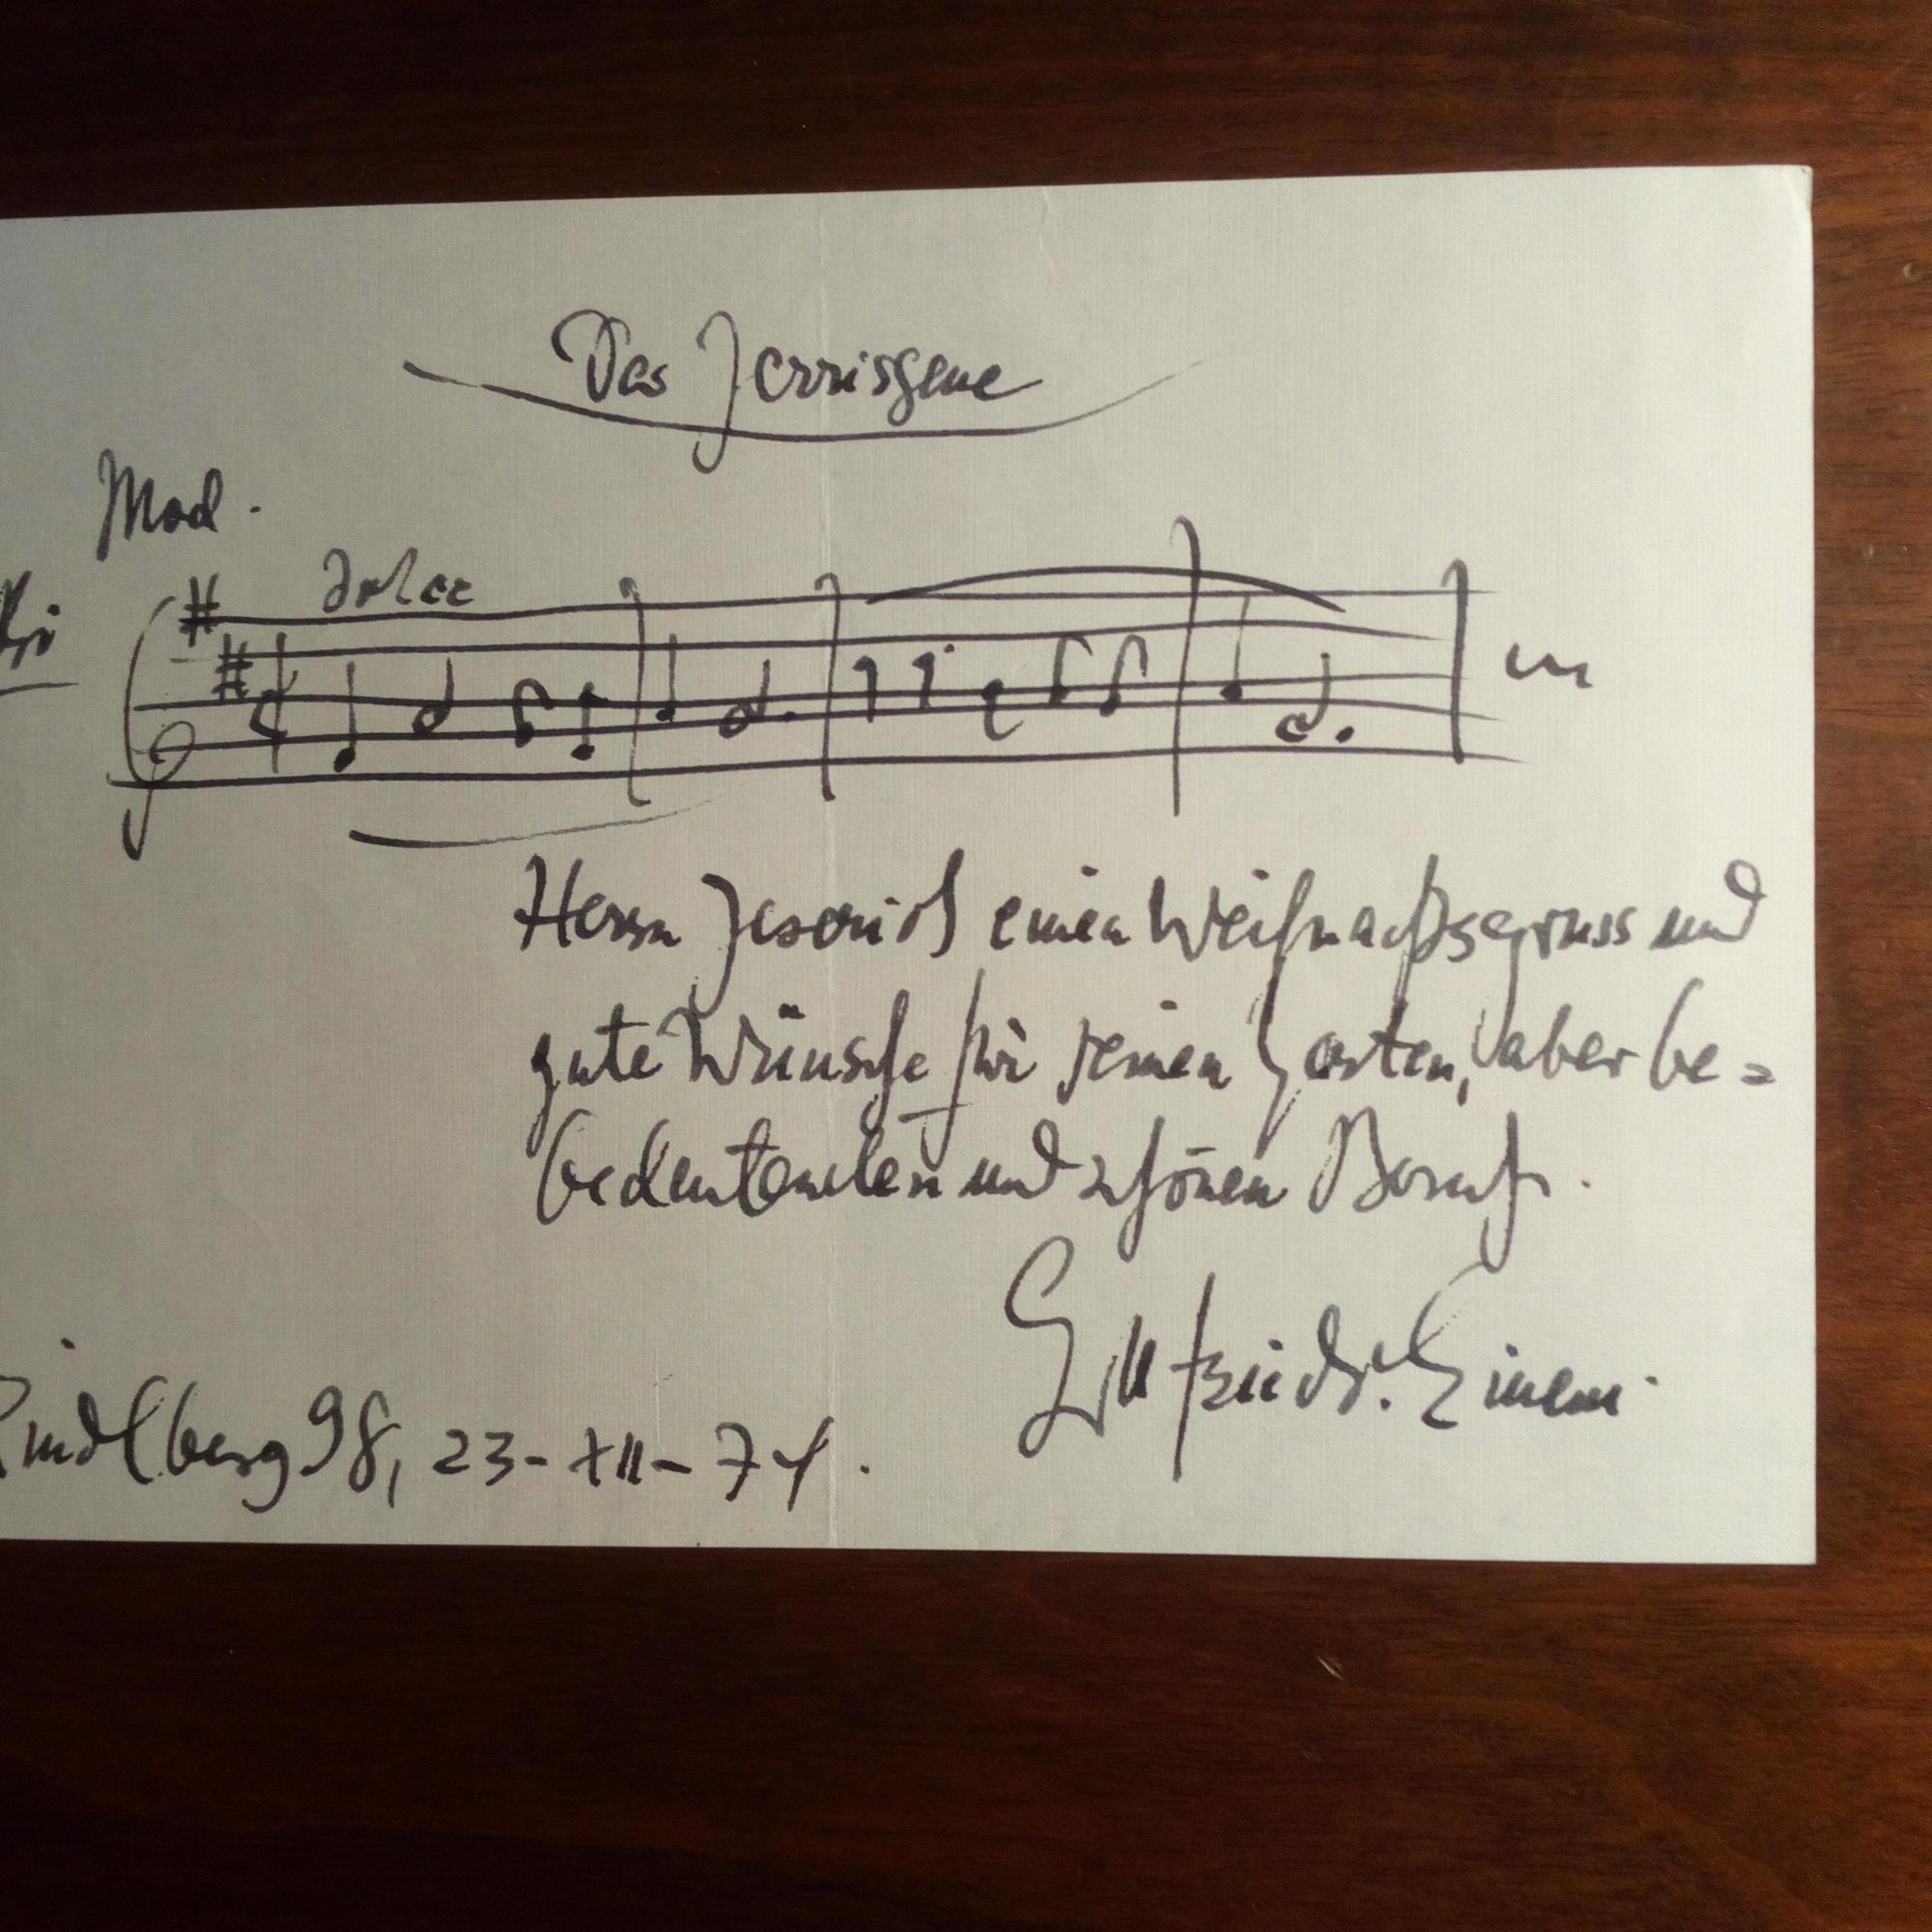 Mod.
dolce
Herrn Jeserich einen Weihnachtsgruss und
gute Wünsche für seinen harten, aber be=
bedeutenden und schönen Beruf.
Gottfried v. Einem.
Rindlberg 98, 23-XII-74.